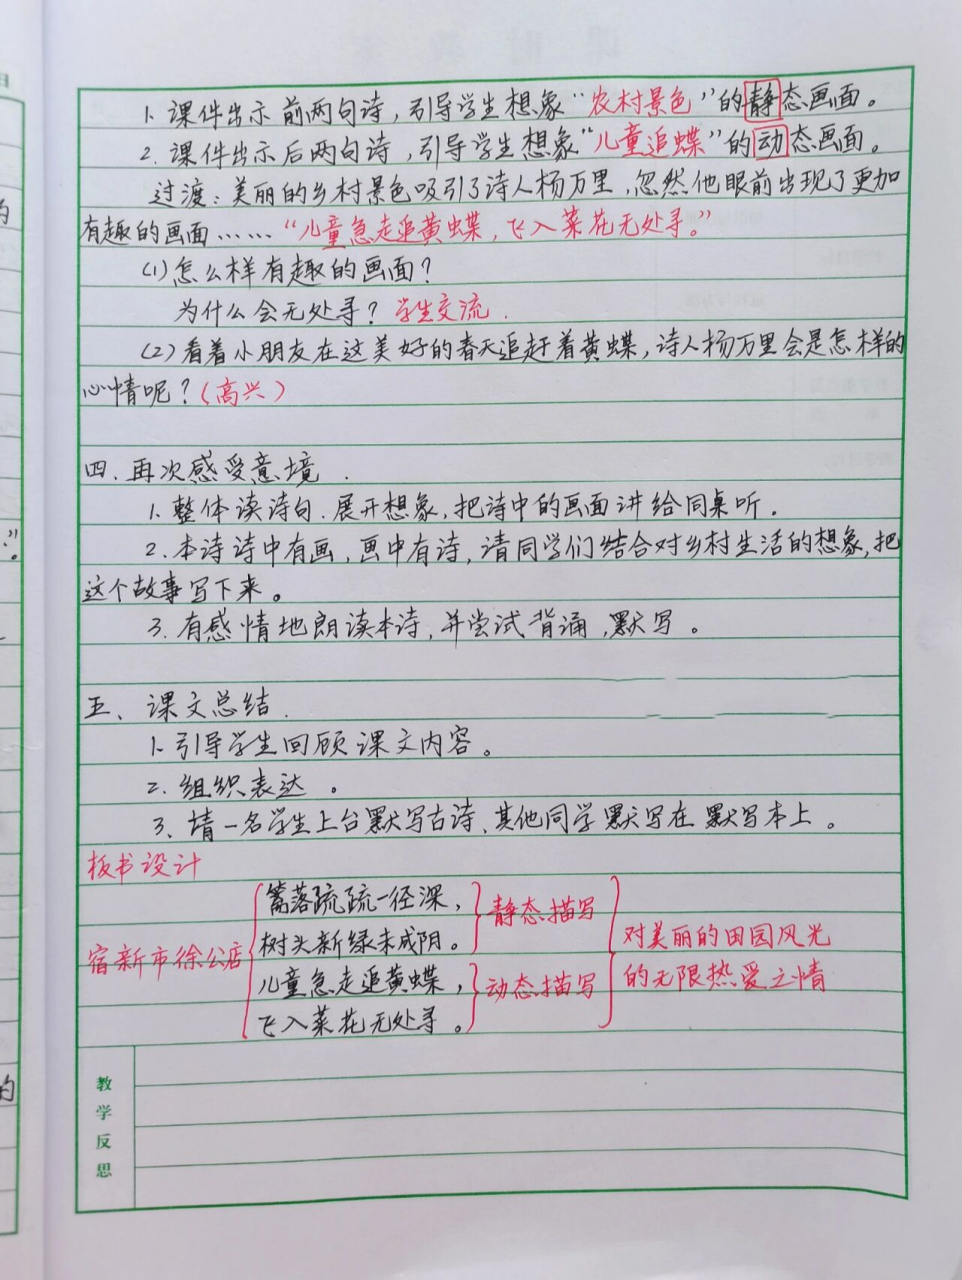 1. 课件出示前两句诗，引导学生想象“农村景色”的静态画面。
2. 课件出示后两句诗，引导学生想象“儿童追蝶”的动态画面。
过渡：美丽的乡村景色吸引了诗人杨万里，忽然他眼前出现了更加
有趣的画面……“儿童急走追黄蝶，飞入菜花无处寻。”
(1)怎么样有趣的画面？
为什么会无处寻？学生交流.
(2)看着小朋友在这美好的春天追赶着黄蝶，诗人杨万里会是怎样的
心情呢？(高兴)
四、再次感受意境.
1. 整体读诗句.展开想象，把诗中的画面讲给同桌听。
2. 本诗诗中有画，画中有诗，请同学们结合对乡村生活的想象，把
这个故事写下来。
3. 有感情地朗读本诗，并尝试背诵，默写。
五、课文总结.
1. 引导学生回顾课文内容。
2. 组织表达。
3、请一名学生上台默写古诗、其他同学默写在默写本上。
板书设计
宿新市徐公店
篱落疏疏一径深，
树头新绿未成阴。
静态描写
儿童急走追黄蝶，
飞入菜花无处寻。
动态描写
对美丽的田园风光
的无限热爱之情
教学反思
的
的